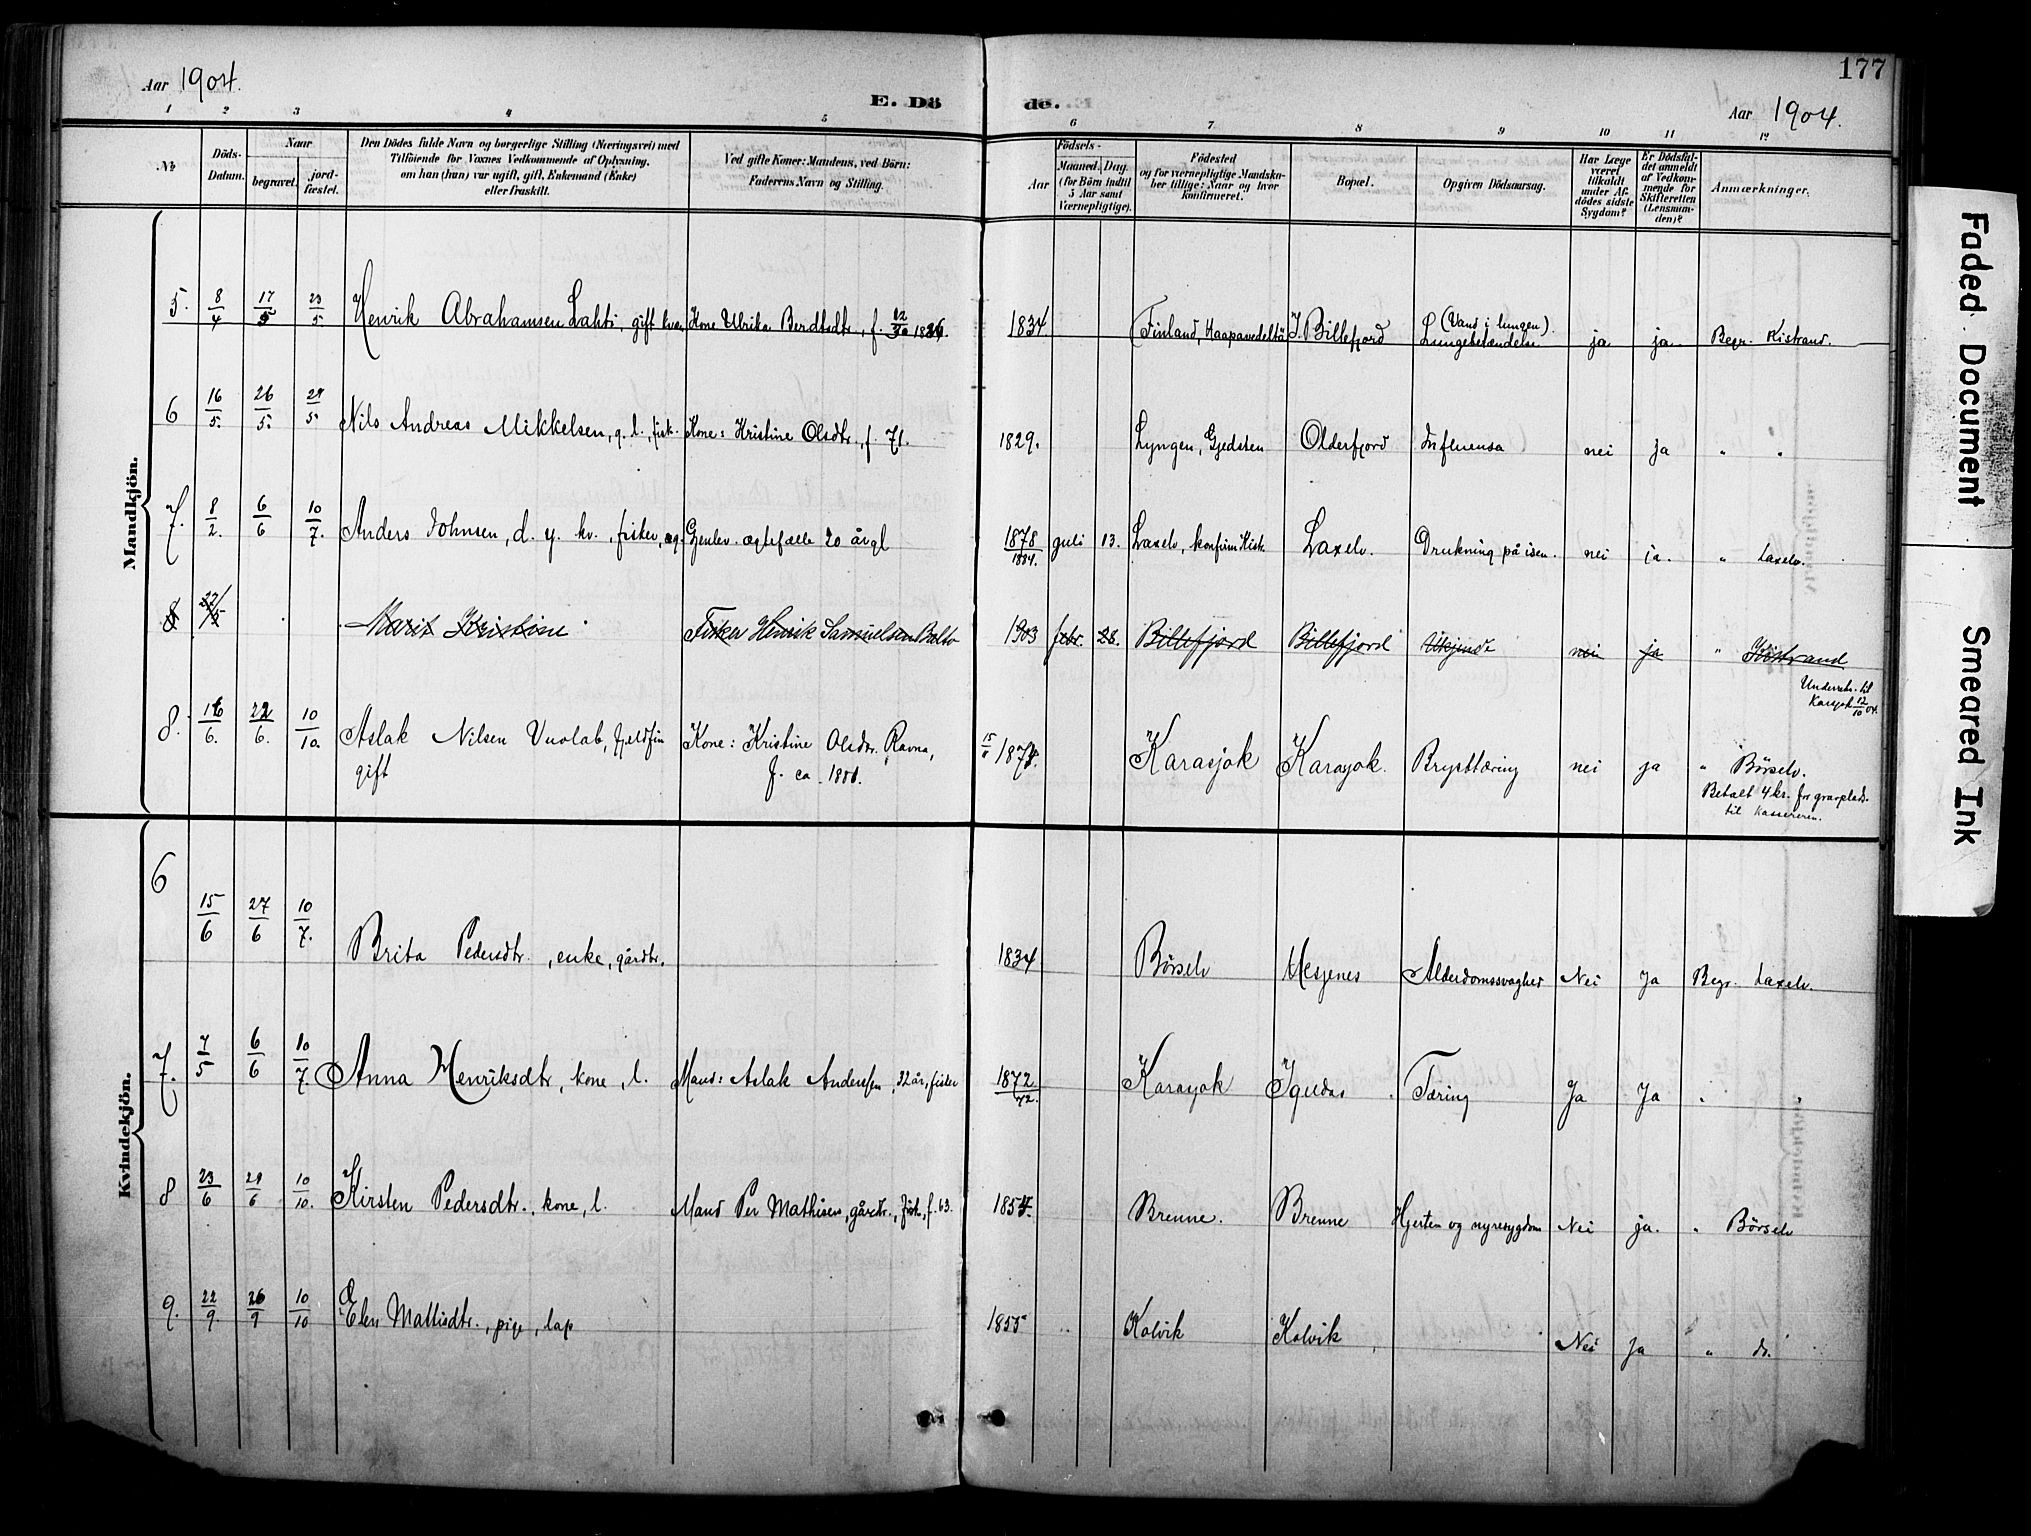 177
Aar 1904.
E. Dö de.
Aar 1904.
1 2 3 4 5 6 7 8 9 10 11 12
№
Döds-Datum.
Naar
begravet.
jord-fæstet.
Den Dödes fulde Navn og borgerlige Stilling (Næringsvei) med
Tilföiende for Voxnes Vedkommende af Oplysning,
om han (hun) var ugift, gift, Enkemand (Enke)
eller fraskilt.
Ved gifte Koner: Mandens, ved Börn:
Faderens Navn og Stilling.
Födsels-
Aar
Maaned. Dag.
(for Börn indtil
5 Aar samt
Værnepligtige).
Födested
og for værnepligtige Mandska-
ber tillige: Naar og hvor
konfirmeret.
Bopæl.
Opgiven Dödsaarsag.
Har Læge
været
tilkaldt
under Af-
dödes sidste
Sygdom?
Er Dödsfal-
det anmeldt
af Vedkom-
mende for
Skifteretten
(Lensman-
den)?
Anmærkninger.
Mandkjön.
5. 8/4 17/5 23/5 Henrik Abrahamsen Lahti, gift Kone Ulrika Berdtsdtr, f. 1834 Finland, Haapavedeltä I. Billefjord (Vand i lungen).
Lungebetændelse ja ja Begr. Kistrand.
6 16/5. 26/5. 29/5 Nils Andreas Mikkelsen, g. l., fisk. Kone: Kristine Olsdtr., f. 71. 1829. Lyngen, Gjedsten Olderfjord Influensa nei ja " "
7. 8/2. 6/6 10/7. Anders Johnsen, d. y. kv., fisker, Genlev. ægtefælle 20 år gl 1878 juli 13. Laxelv, konfirm Kist. Laxelv. Drukning på isen. nei ja. " Laxelv.
1884.
8 22/5 Marit Kristine Fisker Henrik Samuelsen Balto 1903 febr. 28. Billefjord Billefjord Ukjendt nei ja " Kistrand
Underretn. til
Karasjok 12/10 04.
8. 16/6. 22/6. 10/10. Aslak Nilsen Vuolab, fjeldfin Kone: Kristine Olsdtr. Ravna, 187 Karasjok Karasjok. Brysttæring nei ja " Börselv.
gift f. ca. 1880.
Betalt 4 kr. for gravplads.
til Kassereren.
Kvindekjön.
6 15/6 27/6 10/7. Brita Pedersdtr., enke, gårdbr. 1834 Börselv Hesjenes Alderdomssvaghed Nei Ja Begr. Laxelv.
7. 7/5 6/6 10/7 Anna Henriksdtr, kone, l. Mand: Aslak Andersen, 32 år, fisker 1872 Karasjok Igeldas Tæring Ja Ja " "
72.
8 23/6 29/6 10/10. Kirsten Pedersdtr., kone, l. Mand Per Mathisen, gårdbr., fisk., f. 63. 185 Brenne. Brenne Hjerten og nyresygdom Nei ja. " Börselv
9. 22/9. 26/9 10/10 Elen Mattisdtr., pige, lap 1855 " Kolvik Kolvik, Nei Ja " do.
Faded Document
Smeared Ink